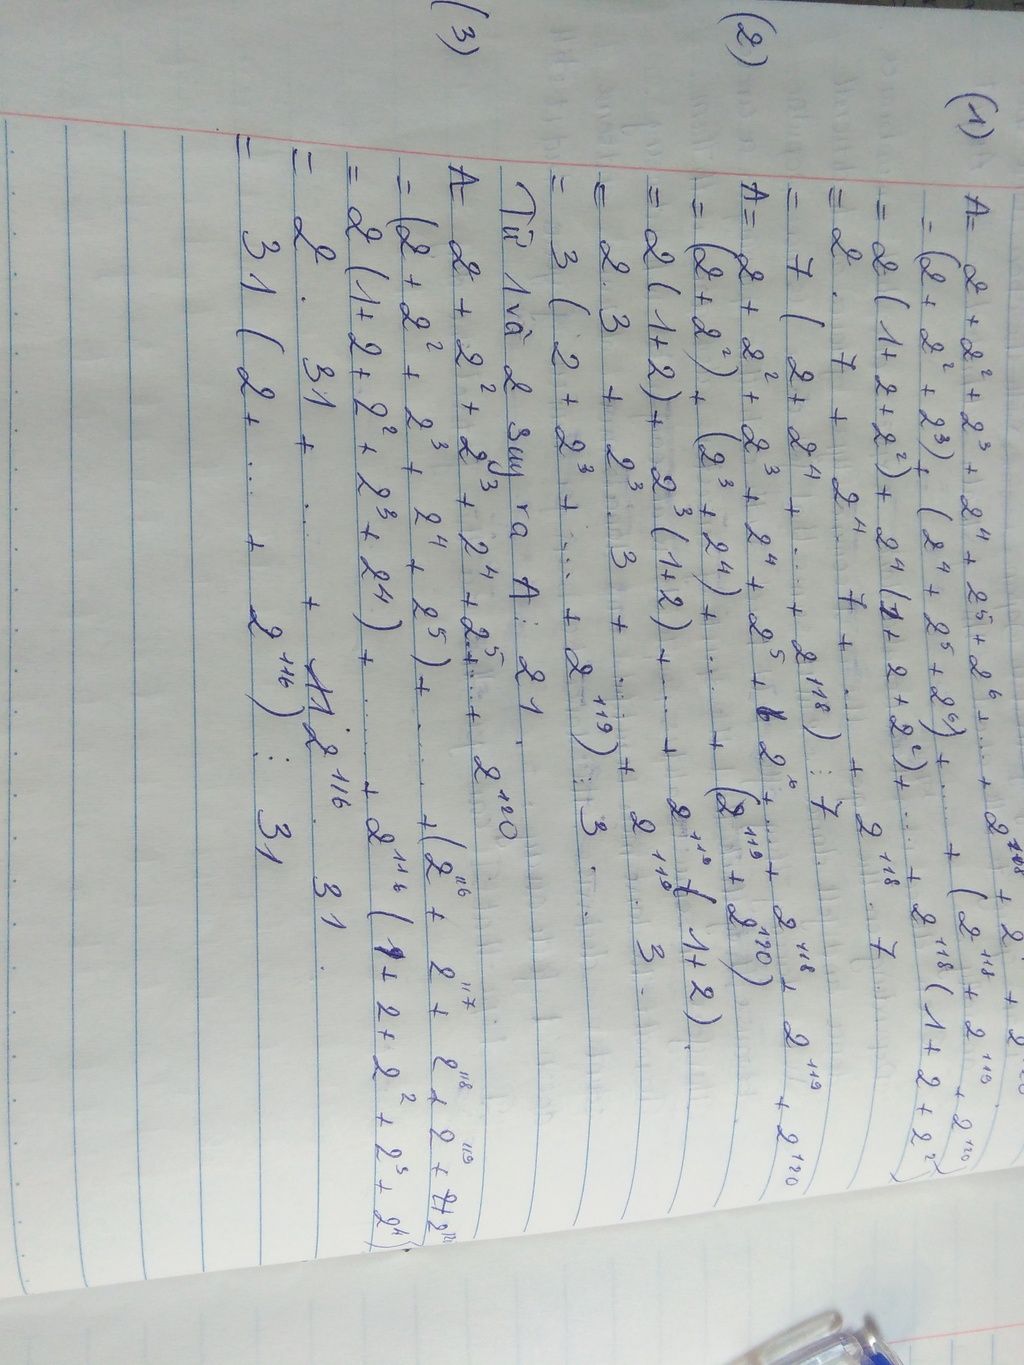 (1) A = 2 + 2² + 2³ + 2⁴ + 2⁵ + 2⁶ + ... + 2¹¹⁸ + 2 + 2¹²⁰
= (2 + 2² + 2³) + (2⁴ + 2⁵ + 2⁶) + .... + (2¹¹⁸ + 2¹¹⁹ + 2¹²⁰)
= 2 (1 + 2 + 2²) + 2⁴ (1 + 2 + 2²) + ... + 2¹¹⁸ (1 + 2 + 2²)
= 2 . 7 + 2⁴ . 7 + ... + 2¹¹⁸ . 7
= 7 ( 2 + 2⁴ + ... + 2¹¹⁸ ) ⋮ 7
(2) A = 2 + 2² + 2³ + 2⁴ + 2⁵ + 2⁶ + ... + 2¹¹⁸ + 2¹¹⁹ + 2¹²⁰
= (2 + 2²) + (2³ + 2⁴) + ... + (2¹¹⁹ + 2¹²⁰)
= 2 (1 + 2) + 2³ (1 + 2) + ... + 2¹¹⁹ ( 1 + 2 ) .
= 2 . 3 + 2³ . 3 + ... + 2¹¹⁹ . 3 .
= 3 ( 2 + 2³ + ... + 2¹¹⁹ ) ⋮ 3 .
Từ 1 và 2 suy ra A ⋮ 21 .
(3) A = 2 + 2² + 2³ + 2⁴ + 2⁵ + ... + 2¹²⁰
= (2 + 2² + 2³ + 2⁴ + 2⁵) + .... + (2¹¹⁶ + 2¹¹⁷ + 2¹¹⁸ + 2¹¹⁹ + 2¹²⁰)
= 2 (1 + 2 + 2² + 2³ + 2⁴) + .... + 2¹¹⁶ ( 1 + 2 + 2² + 2³ + 2⁴ )
= 2 . 31 + ... + 2¹¹⁶ . 31 .
= 31 ( 2 + ... + 2¹¹⁶ ) ⋮ 31